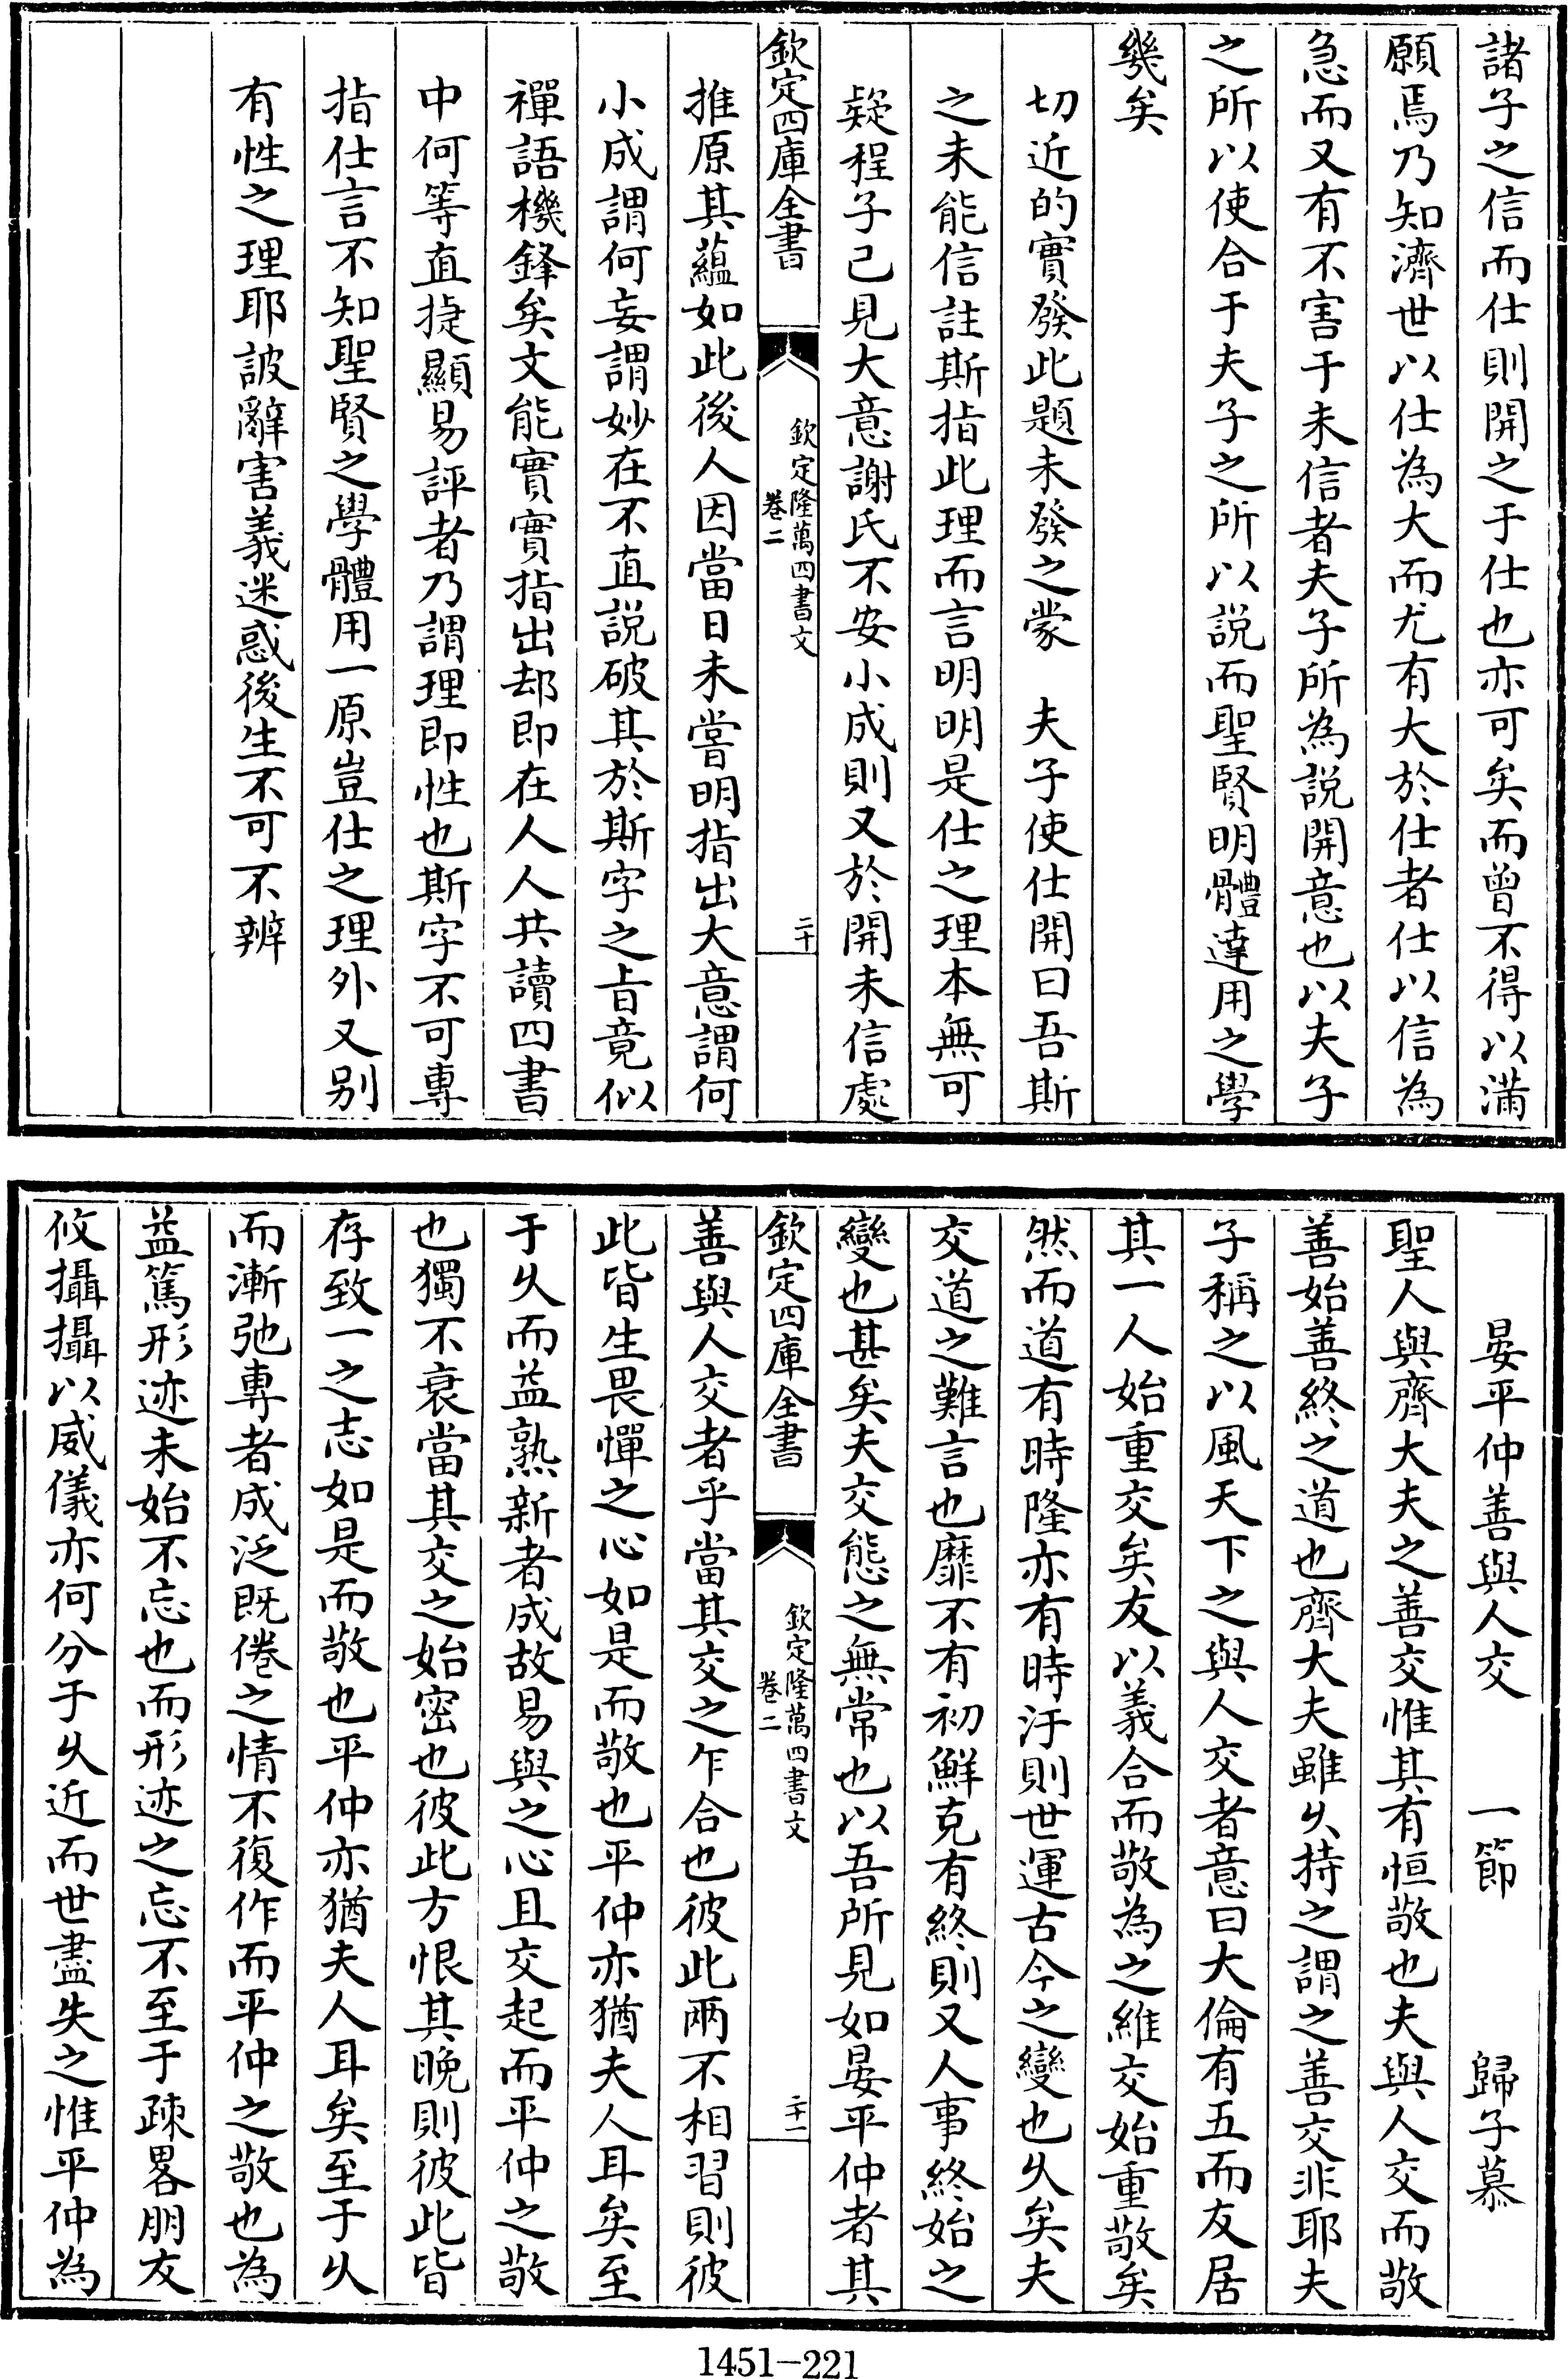 諸子之信而仕則開之于仕也亦可矣而曾不得以滿
願焉乃知濟世以仕為大而尤有大於仕者仕以信為
急而又有不害于未信者夫子所為説開意也以夫子
之所以使合于夫子之所以説而聖賢明體達用之學
幾矣
切近的實發此題未發之蒙　夫子使仕開曰吾斯
之未能信註斯指此理而言明明是仕之理本無可
疑程子已見大意謝氏不安小成則又於開未信處
欽定四庫全書
欽定隆萬四書文
卷二
二十
推原其蘊如此後人因當日未嘗明指出大意謂何
小成謂何妄謂妙在不直説破其於斯字之㫖竟似
禪語機鋒矣文能實實指出却即在人人共讀四書
中何等直捷顯易評者乃謂理即性也斯字不可專
指仕言不知聖賢之學體用一原豈仕之理外又别
有性之理耶詖辭害義迷惑後生不可不辨
晏平仲善與人交　一節　歸子慕
聖人與齊大夫之善交惟其有恒敬也夫與人交而敬
善始善終之道也齊大夫雖乆持之謂之善交非耶夫
子稱之以風天下之與人交者意曰大倫有五而友居
其一人始重交矣友以義合而敬為之維交始重敬矣
然而道有時隆亦有時汙則世運古今之變也乆矣夫
交道之難言也靡不有初鮮克有終則又人事終始之
變也甚矣夫交態之無常也以吾所見如晏平仲者其
欽定四庫全書
欽定隆萬四書文
卷二
二十一
善與人交者乎當其交之乍合也彼此兩不相習則彼
此皆生畏憚之心如是而敬也平仲亦猶夫人耳矣至
于乆而益熟新者成故易與之心且交起而平仲之敬
也獨不衰當其交之始密也彼此方恨其晚則彼此皆
存致一之志如是而敬也平仲亦猶夫人耳矣至于乆
而漸弛專者成泛既倦之情不復作而平仲之敬也為
益篤形迹未始不忘也而形迹之忘不至于疎畧朋友
攸攝攝以威儀亦何分于乆近而世盡失之惟平仲為
1451-221